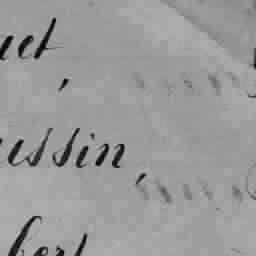 uet,
ussin,
bert